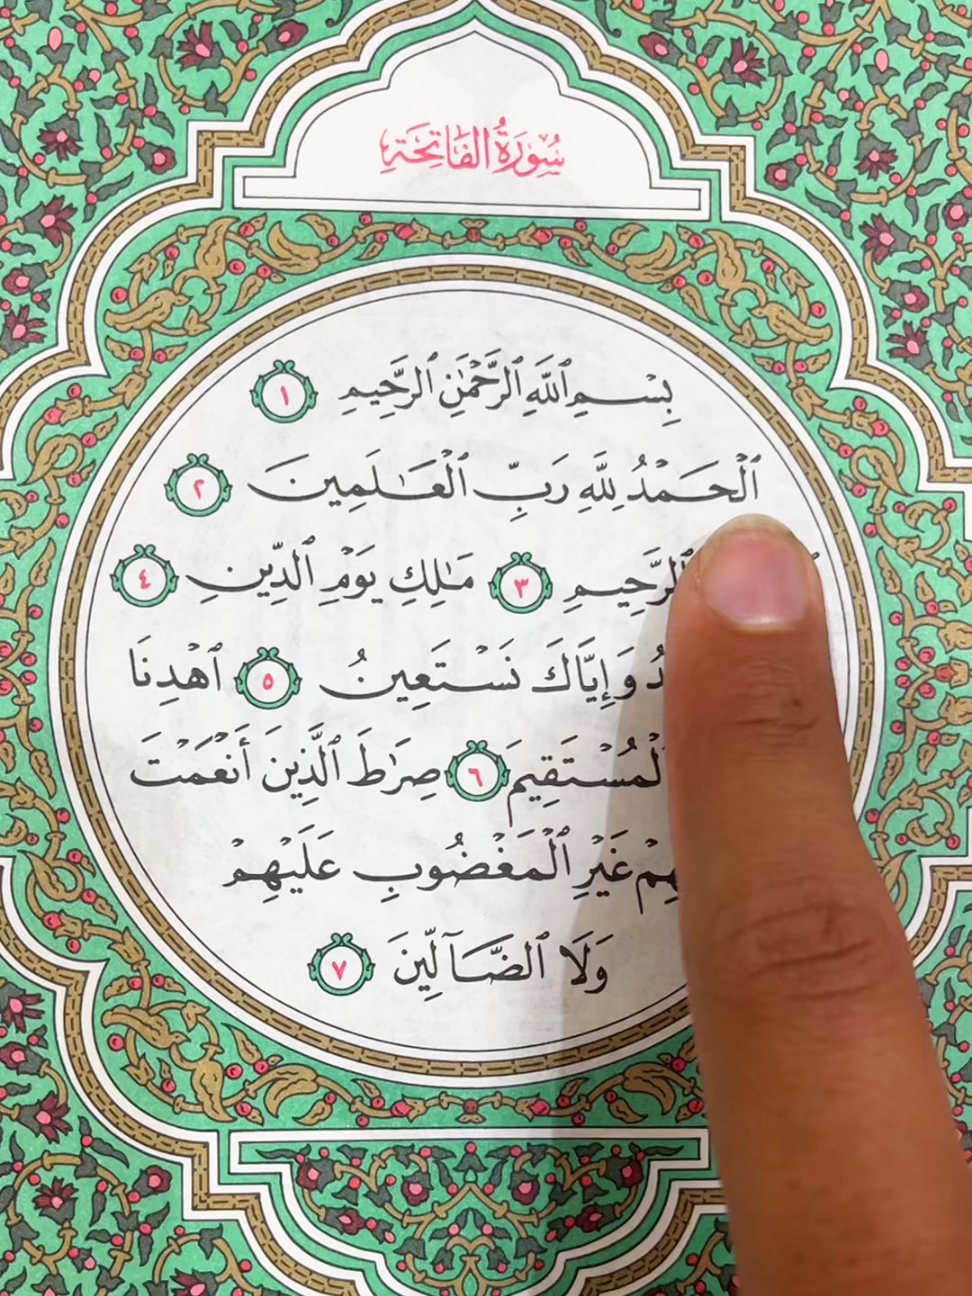 سُورَةُ الفَاتِحَةِ
بِسْمِ ٱللَّهِ ٱلرَّحْمَٰنِ ٱلرَّحِيمِ ١
ٱلْحَمْدُ لِلَّهِ رَبِّ ٱلْعَٰلَمِينَ ٢
ٱلرَّحِيمِ ٣ مَٰلِكِ يَوْمِ ٱلدِّينِ ٤
وَإِيَّاكَ نَسْتَعِينُ ٥ ٱهْدِنَا
ٱلْمُسْتَقِيمَ ٦ صِرَٰطَ ٱلَّذِينَ أَنْعَمْتَ
غَيْرِ ٱلْمَغْضُوبِ عَلَيْهِمْ
وَلَا ٱلضَّآلِّينَ ٧